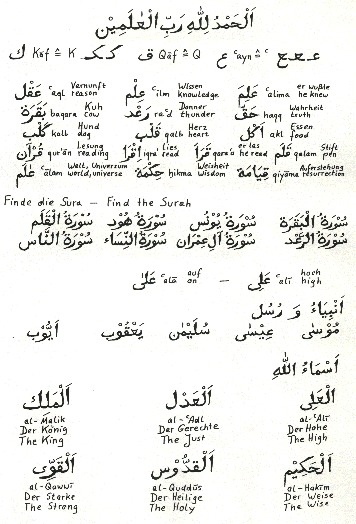 اَلْحَمْدُ لِلّٰهِ رَبِّ الْعٰلَمِيْنَ
ك Kāf ≙ K ككك ق Qāf ≙ Q ع ʿayn ≙ ʿ ععع
عَقْل ʿaql Vernunft reason عِلْم ʿilm Wissen knowledge عَلِمَ ʿalima er wußte he knew
بَقَرَة baqara Kuh cow رَعْد raʿd Donner thunder حَقّ haqq Wahrheit truth
كَلْب kalb Hund dog قَلْب qalb Herz heart أَكْل akl Essen food
قُرْآن qurʾān Lesung reading اِقْرَأ iqraʾ lies read قَرَأَ qaraʾa er las he read قَلَم qalam Stift pen
عٰلَم ʿālam Welt, Universum world, universe حِكْمَة ḥikma Weisheit wisdom قِيَامَة qiyāma Auferstehung resurrection
Finde die Sura – Find the Surah
سُوْرَةُ الْبَقَرَة سُوْرَةُ يُوْنُس سُوْرَةُ هُوْد سُوْرَةُ الْقَلَم
سُوْرَةُ الرَّعْد سُوْرَةُ آلِ عِمْرَان سُوْرَةُ النِّسَاء سُوْرَةُ النَّاس
عَلٰى ʿalā auf on – عَلِي ʿalī hoch high
أَنْبِيَاء وَ رُسُل
مُوْسٰى عِيْسٰى سُلَيْمٰن يَعْقُوْب أَيُّوْب
أَسْمَاءُ اللّٰهِ
اَلْمَلِك اَلْعَدْل اَلْعَلِي
al-Malik al-ʿAdl al-ʿAlī
Der König Der Gerechte Der Hohe
The King The Just The High
اَلْقَوِّى اَلْقُدُّوْس اَلْحَكِيْم
al-Qawwī al-Quddūs al-Ḥakīm
Der Starke Der Heilige Der Weise
The Strong The Holy The Wise